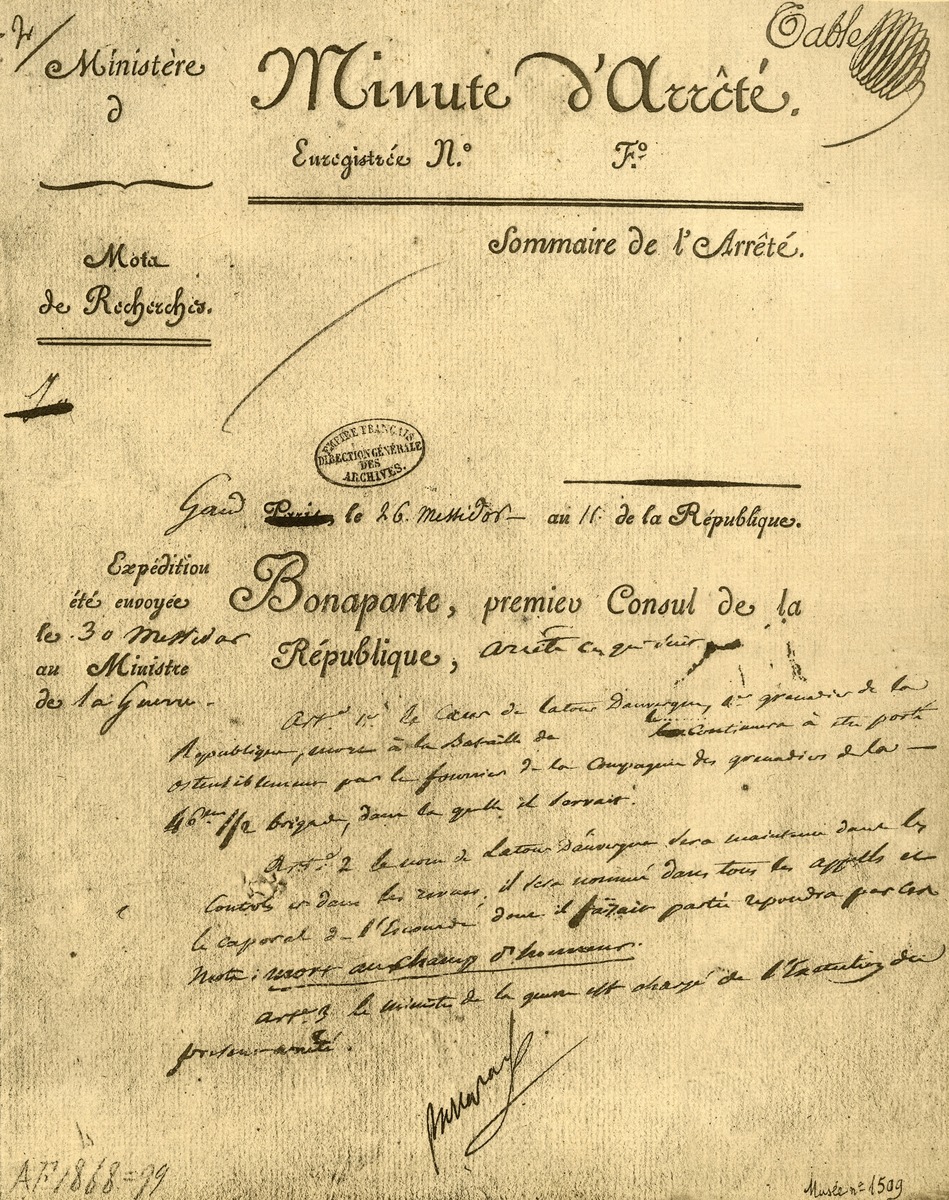 2/
Table
Ministère
d
Minute d'Arrêté.
Enregistrée N.º F.º
Sommaire de l'Arrêté.
Mots
de Recherches.
EMPIRE FRANÇAIS
DIRECTION GÉNÉRALE
DES
ARCHIVES.
Gand Paris, le 26. Messidor an 11. de la République.
Expédition
été envoyée
le 30 Messidor
au Ministre
de la Guerre.
Bonaparte, premier Consul de la
République, arrête ce qui suit
Art. 1er le Cœur de latour Dauvergne, 1er grenadier de la
Republique, mort à la Bataille de continuera à etre porté
ostensiblement par le fourrier de la Compagnie des grenadiers de la
46me 1/2 brigade, dans la quelle il servait.
Art. 2 le nom de Latour Dauvergne sera maintenu dans les
Controls et dans les revues, il sera nommé dans tous les appells et
le caporal de l'Escouade dont il faisait partie repondra par ces
mots: mort au champ d'honneur.
art. 3 le ministre de la guerre est chargé de l'Execution du
present arrêté.
AF 1868=99
Musée nº 1509